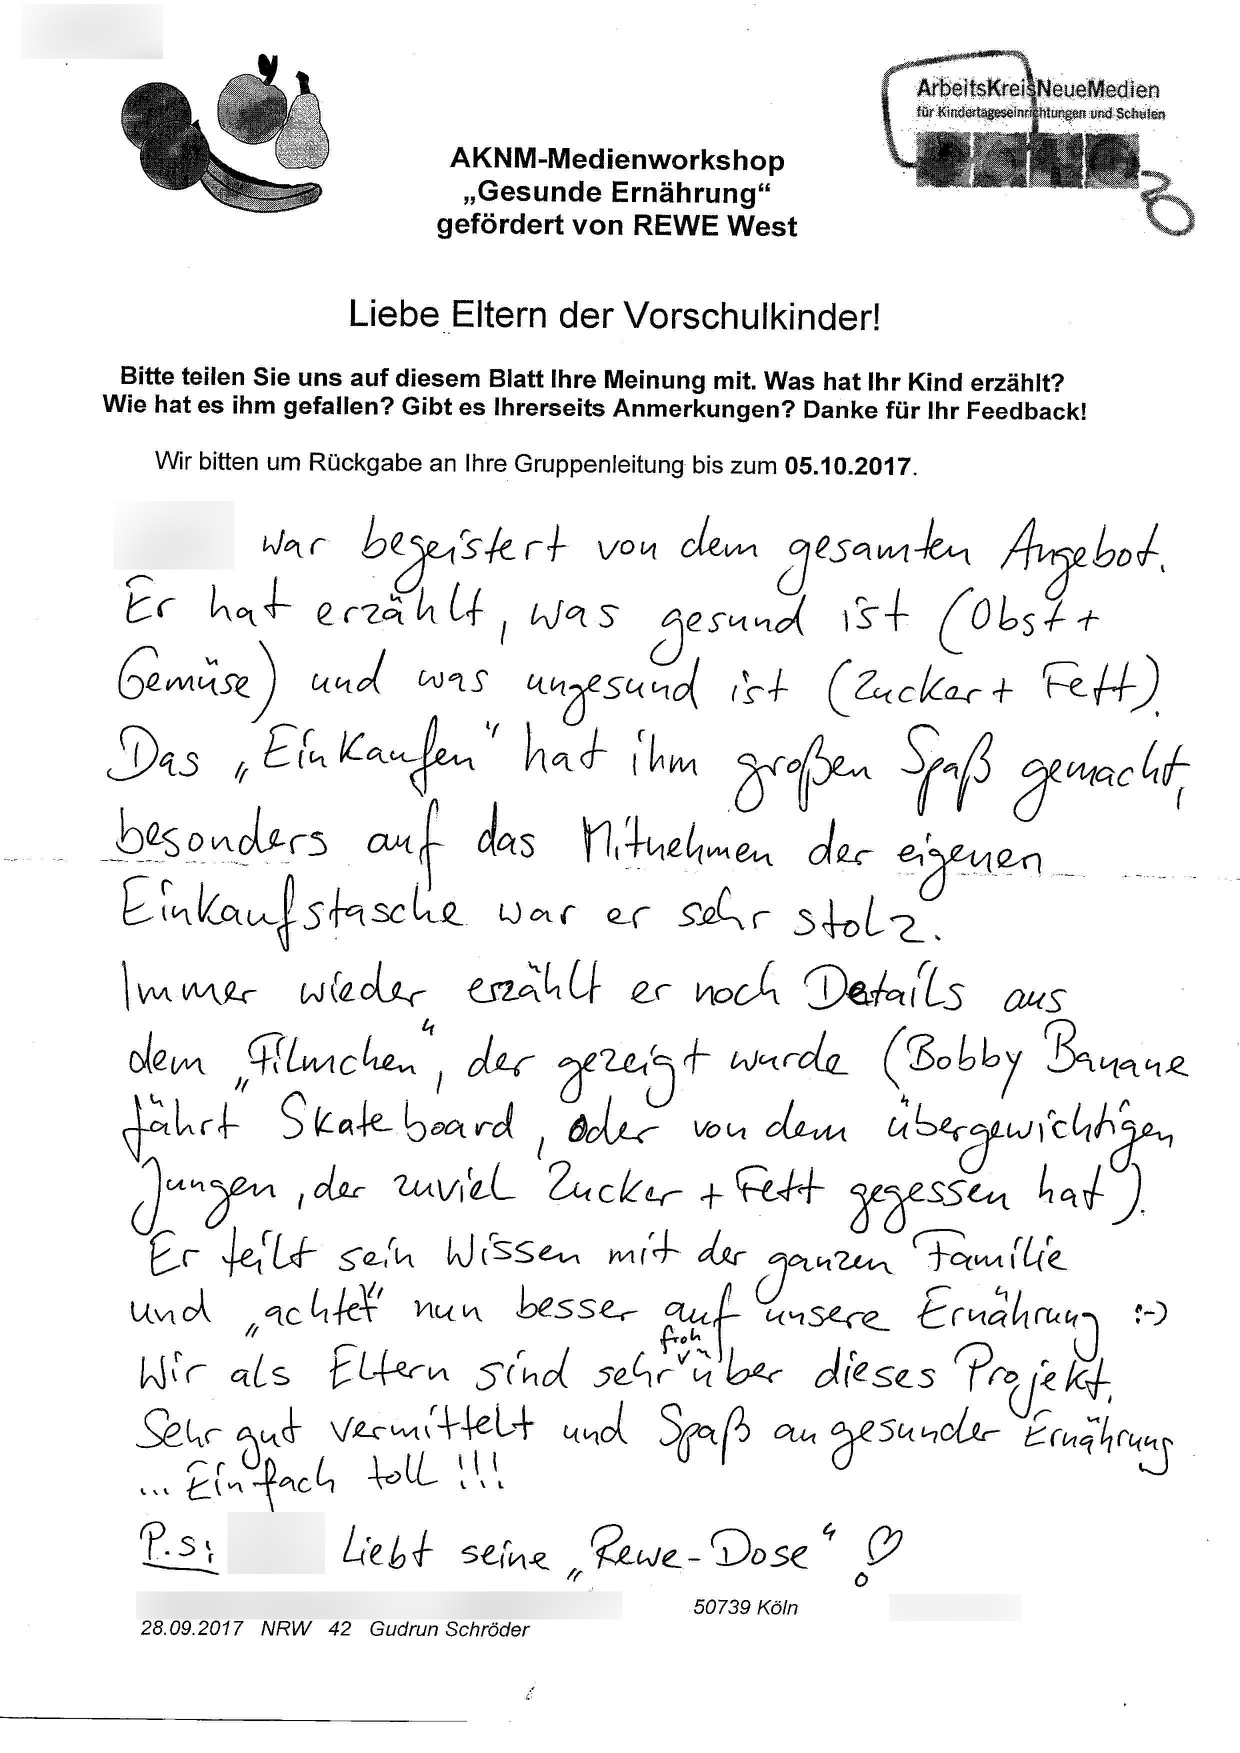 ArbeitsKreisNeueMedien
für Kindertageseinrichtungen und Schulen
AKNM-Medienworkshop
„Gesunde Ernährung“
gefördert von REWE West
Liebe Eltern der Vorschulkinder!
Bitte teilen Sie uns auf diesem Blatt Ihre Meinung mit. Was hat Ihr Kind erzählt?
Wie hat es ihm gefallen? Gibt es Ihrerseits Anmerkungen? Danke für Ihr Feedback!
Wir bitten um Rückgabe an Ihre Gruppenleitung bis zum 05.10.2017.
war begeistert von dem gesamten Angebot.
Er hat erzählt, was gesund ist (Obst +
Gemüse) und was ungesund ist (Zucker + Fett).
Das „Einkaufen“ hat ihm großen Spaß gemacht,
besonders auf das Mitnehmen der eigenen
Einkaufstasche war er sehr stolz.
Immer wieder erzählt er noch Details aus
dem „Filmchen“, der gezeigt wurde (Bobby Banane
fährt Skateboard, oder von dem übergewichtigen
Jungen, der zuviel Zucker + Fett gegessen hat).
Er teilt sein Wissen mit der ganzen Familie
und „achtet“ nun besser auf unsere Ernährung :-)
Wir als Eltern sind sehr froh über dieses Projekt.
Sehr gut vermittelt und Spaß an gesunder Ernährung
... Einfach toll !!!
P.s: Liebt seine „Rewe-Dose“
50739 Köln
28.09.2017 NRW 42 Gudrun Schröder